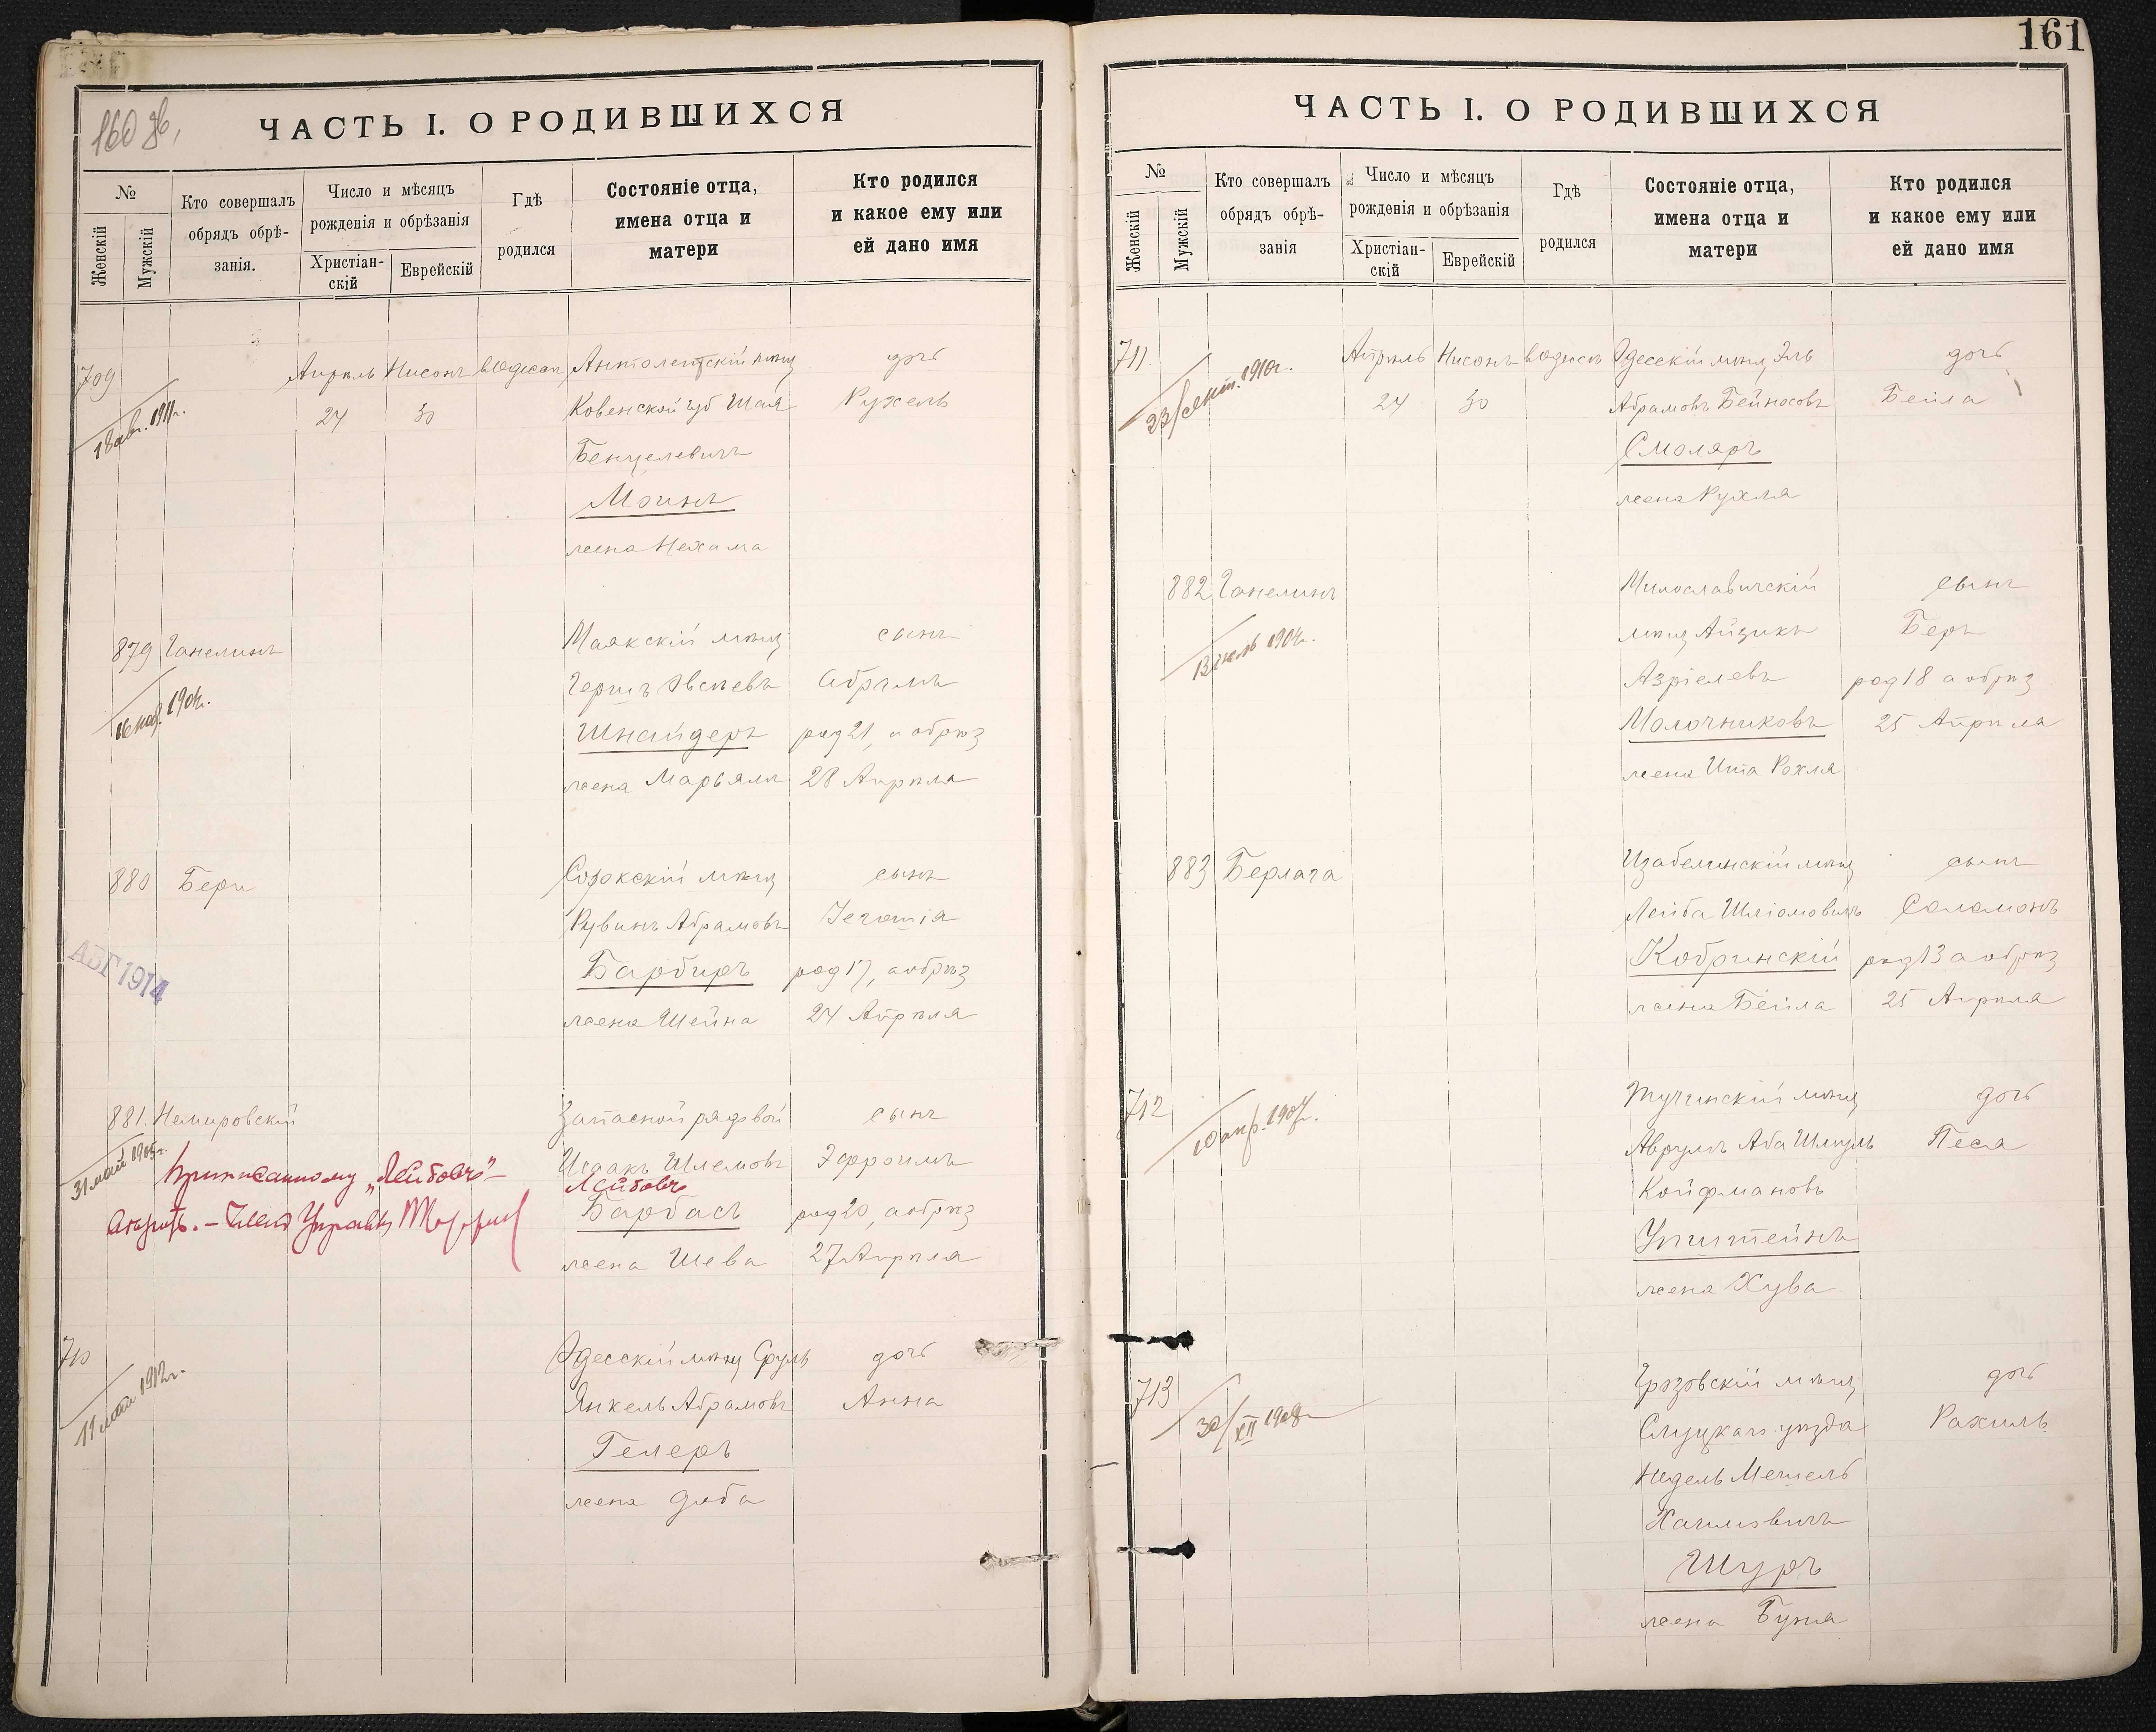 160 об.
ЧАСТЬ I. О РОДИВШИХСЯ
№
Женскій
Мужскій
Кто совершалъ
обрядъ обрѣ-
занія.
Число и мѣсяцъ
рожденія и обрѣзанія
Христіан-
скій
Еврейскій
Гдѣ
родился
Состояніе отца,
имена отца и
матери
Кто родился
и какое ему или
ей дано имя
709 Апрѣль Нисонъ въ Одессѣ мѣщ дочь
18 авг. 1911г. 24 30 Ковенской губ Шая Рухель
Бенцелевичъ
жена Нехама
879 Ганелинъ Маякскій мѣщ сынъ
1904г. Гершъ Абрамъ
Шнайдеръ род 21, а обрѣз
жена Марьямъ 28 Апрѣля
880 Бери Сорокскій мѣщ сынъ
Рувинъ Абрамовъ
Барбиръ род 17, а обрѣз
АВГ 1914
жена Шейна 24 Апрѣля
881. Немировскій Запасной рядовой сынъ
31 май 1905г.
Приписанному „Лейбовъ" - Исаакъ Шлемовъ Эфроимъ
Лейбовъ
Барбасъ род 20, а обрѣз
жена Шева 27 Апрѣля
710 Одесскій мѣщ Сруль дочь
11 май 1912г. Янкель Абрамовъ Анна
Гелеръ
жена
161
ЧАСТЬ I. О РОДИВШИХСЯ
№
Женскій
Мужскій
Кто совершалъ
обрядъ обрѣ-
занія
Число и мѣсяцъ
рожденія и обрѣзанія
Христіан-
скій
Еврейскій
Гдѣ
родился
Состояніе отца,
имена отца и
матери
Кто родился
и какое ему или
ей дано имя
711 Апрѣль Нисонъ въ Одессѣ Одесскій мѣщ Эль дочь
23/сент. 1910г. 24 30 Абрамовъ Бейносовъ Бейла
Смоляръ
жена Рухля
882 Ганелинъ Милославичскій сынъ
1904г. мѣщ Айзикъ Беръ
Азріелевъ род 18 а обрѣз
Молочниковъ 25 Апрѣля
жена Ита Рохля
883 Берлага Изабелинскій мѣщ сынъ
Лейба Шліомовичъ Соломонъ
Кобринскій род 13 а обрѣз
жена Бейла 25 Апрѣля
712 Тучинскій мѣщ дочь
10 апр. 1907г. Аврумъ Аба Шмуль Песя
Койфмановъ
Эпштейнъ
жена Хува
713 Грозовскій мѣщ дочь
30/XII 1908 Слуцкаго уѣзда Рахиль
Хаимовичъ
Шуръ
жена Буня